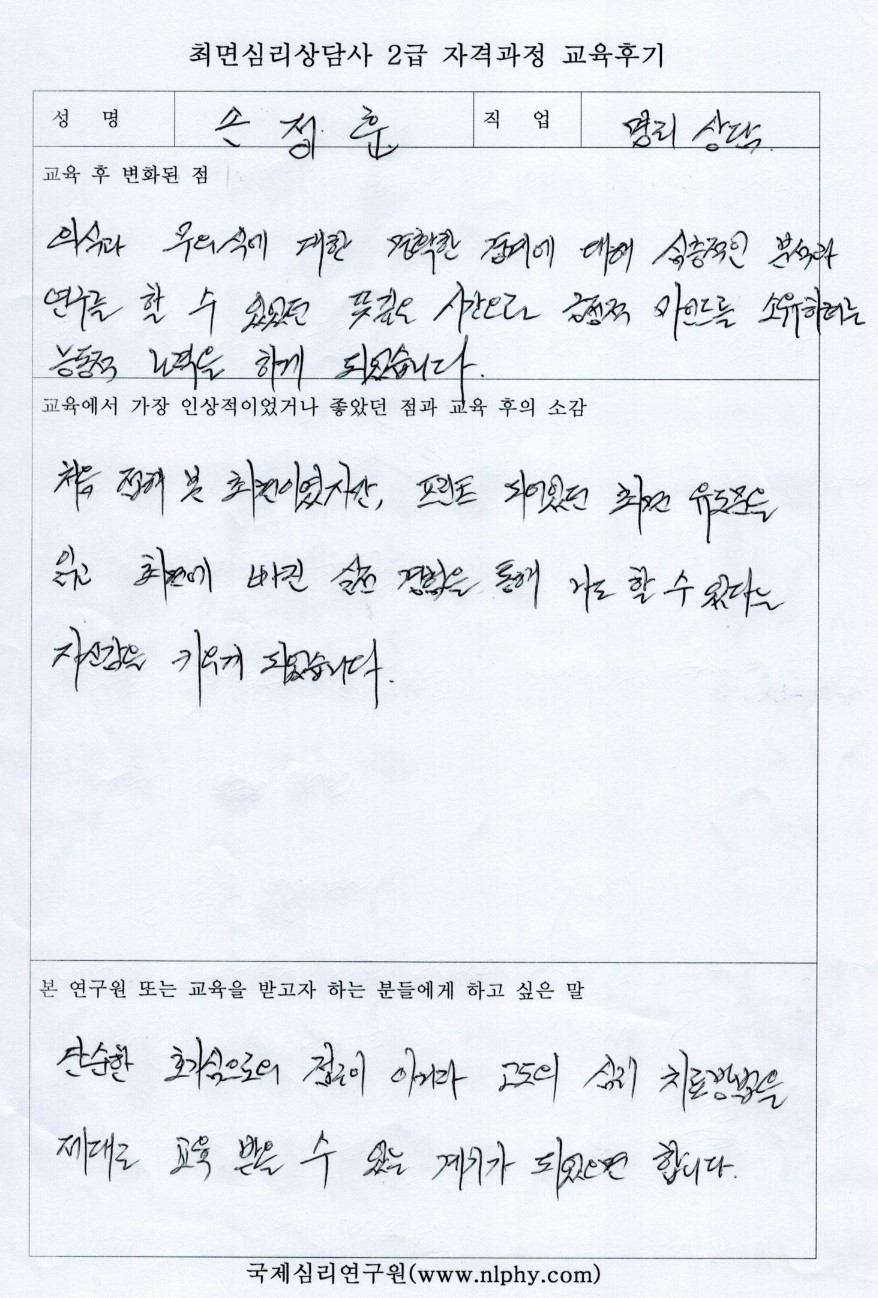 최면심리상담사 2급 자격과정 교육후기
성 명 손 정 훈 직 업 명리 상담.
교육 후 변화된 점
의식과 무의식에 대한 정확한 정의에 대해 심층적인 분석과
연구를 할 수 있었던 뜻깊은 시간으로 긍정적 마인드를 소유하려는
능동적 노력을 하게 되었습니다.
교육에서 가장 인상적이었거나 좋았던 점과 교육 후의 소감
처음 접해 본 최면이였지만, 프린트 되어있던 최면 유도문을
읽고 최면에 빠진 실즈 경험을 통해 나도 할 수 있다는
자신감을 키우게 되었습니다.
본 연구원 또는 교육을 받고자 하는 분들에게 하고 싶은 말
단순한 호기심으로의 접근이 아니라 고도의 심리 치료방법을
제대로 교육 받을 수 있는 계기가 되었으면 합니다.
국제심리연구원(www.nlphy.com)